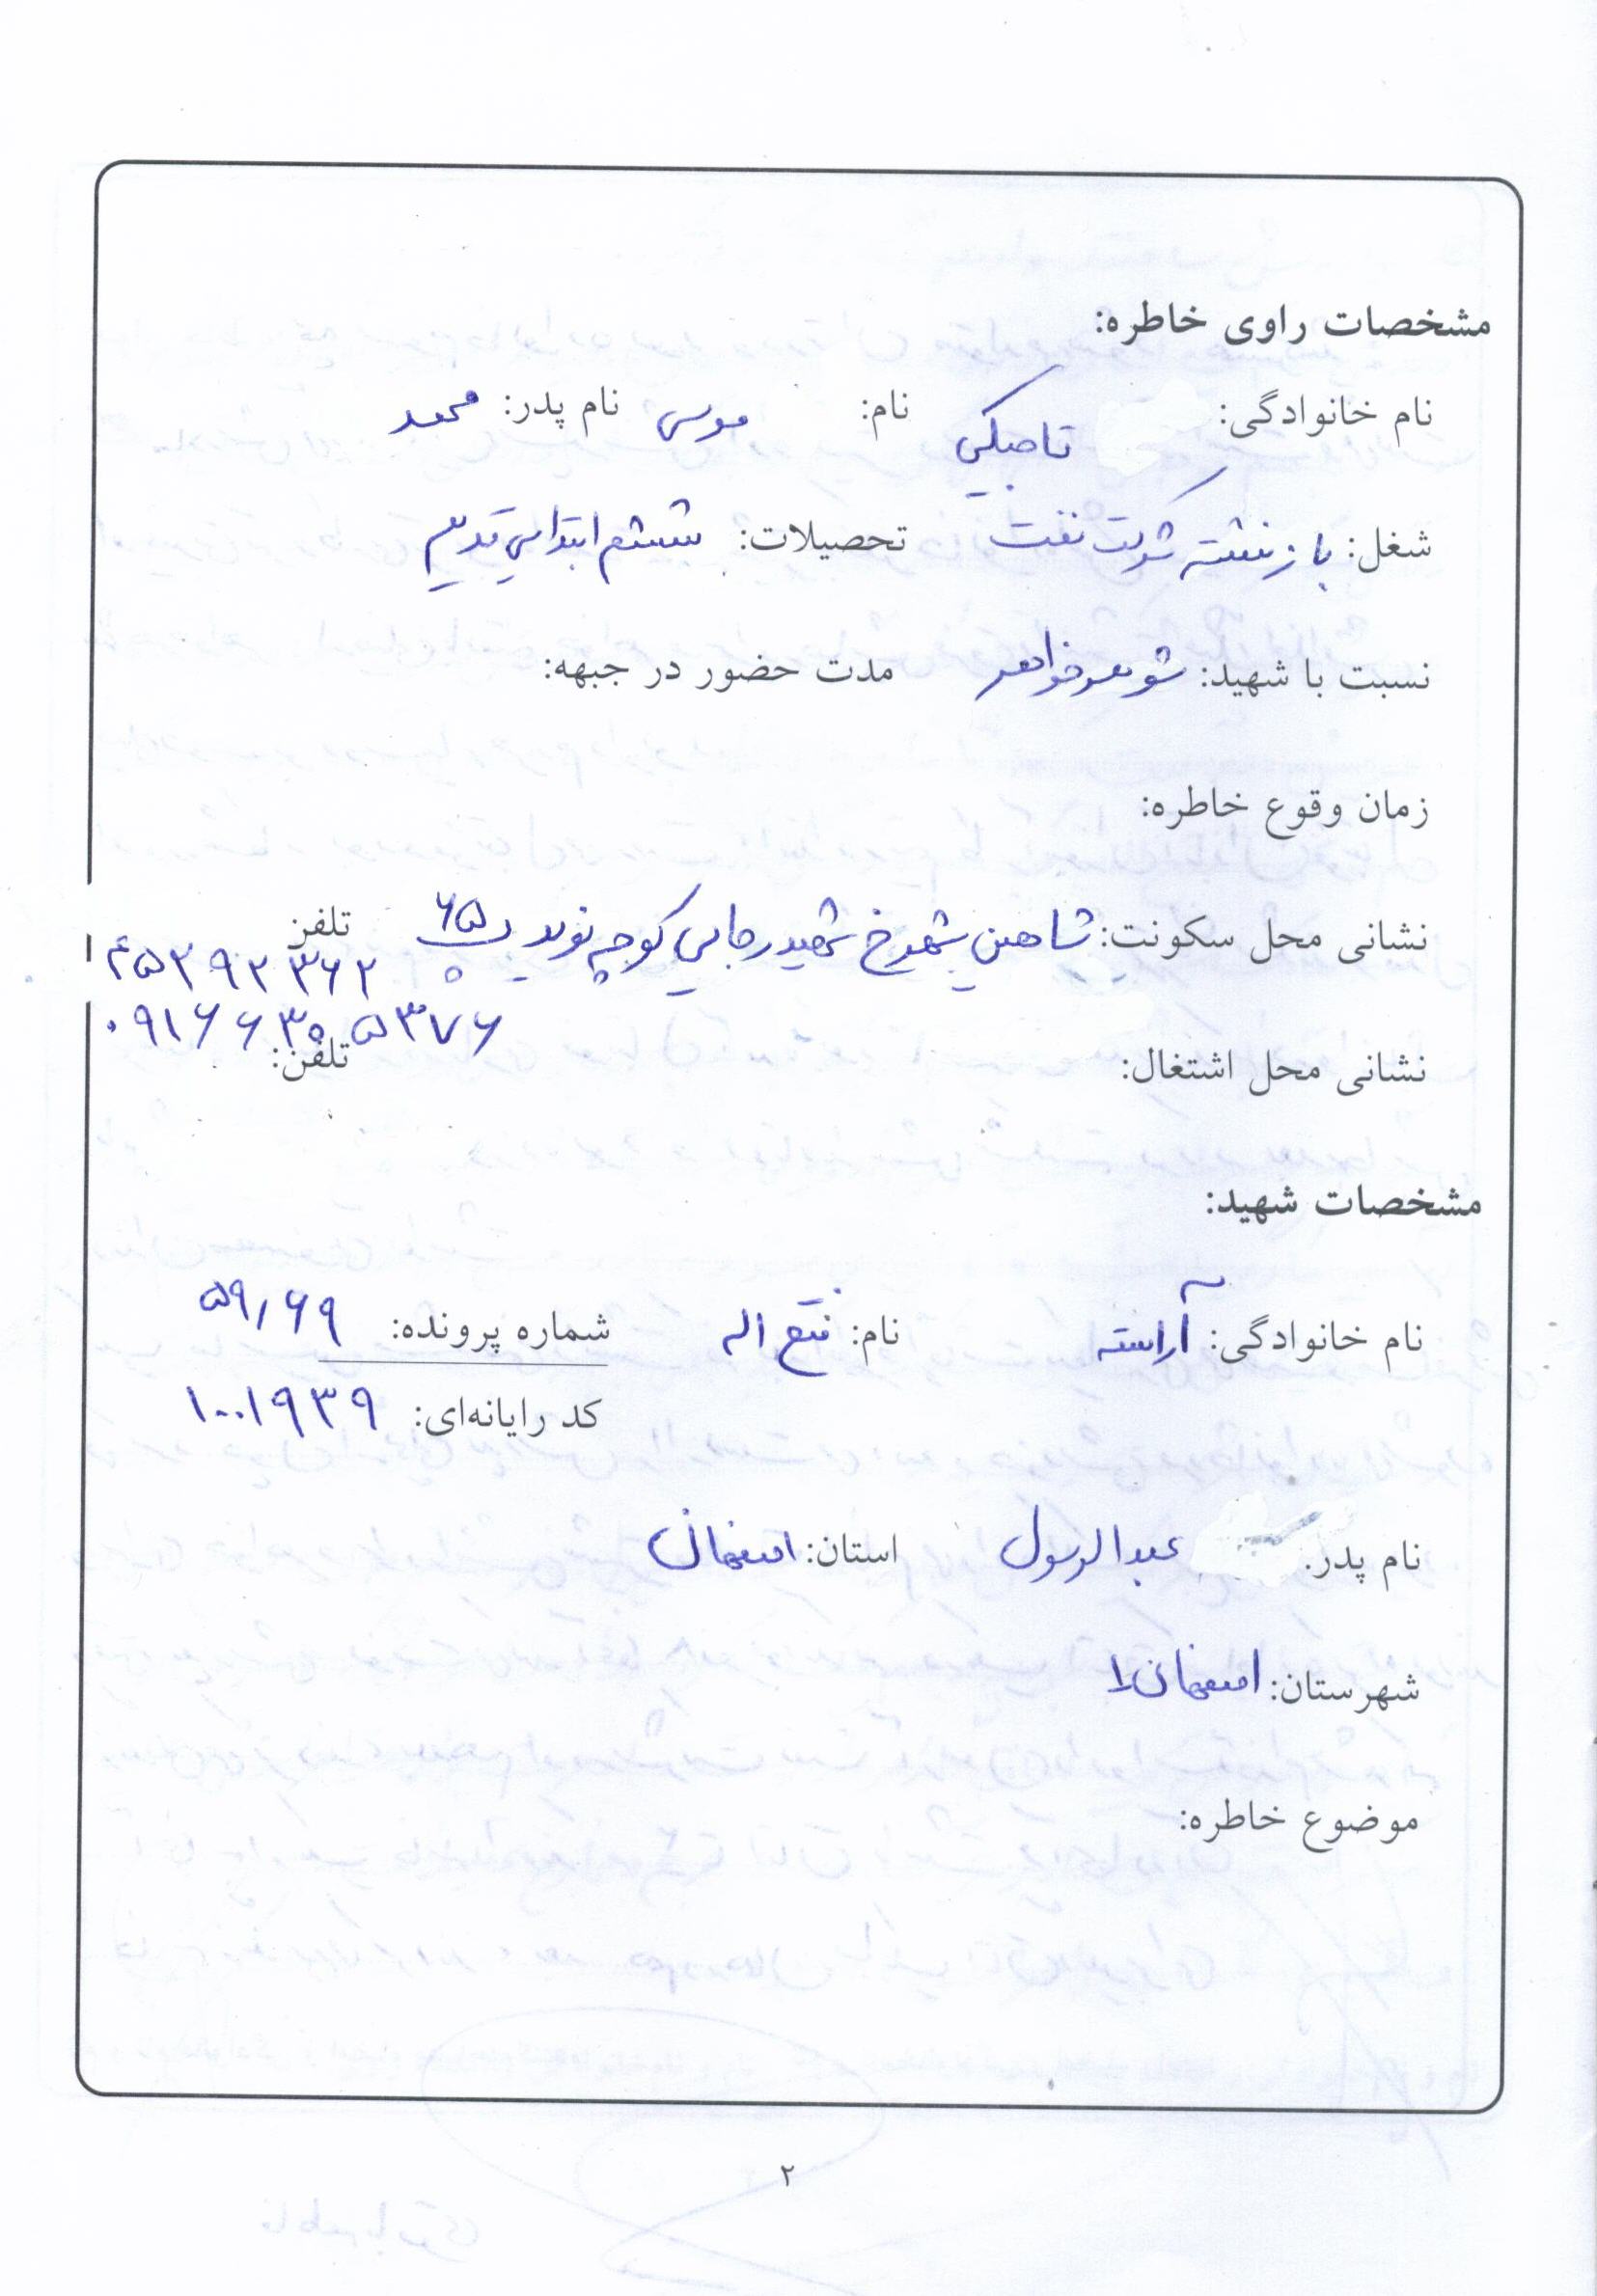 مشخصات راوی خاطره:
نام خانوادگی: تاجبکی نام: موسی نام پدر: محمد
شغل: بازنشسته شرکت نفت تحصیلات: ششم ابتدایی قدیم
نسبت با شهید: شوهر خواهر مدت حضور در جبهه:
زمان وقوع خاطره:
نشانی محل سکونت: شاهین شهر خ شهید رجایی کوچه نوید پ ۶۵ تلفن
۰۹۱۶۶۳۰۵۳۷۶
نشانی محل اشتغال: تلفن:
مشخصات شهید:
نام خانوادگی: آراسته نام: فتح اله شماره پرونده: ۵۹/۶۹
کد رایانه‌ای: ۱۰۰۱۹۳۹
نام پدر. عبدالرسول استان: اصفهان
شهرستان: اصفهان ۱
موضوع خاطره:
۲